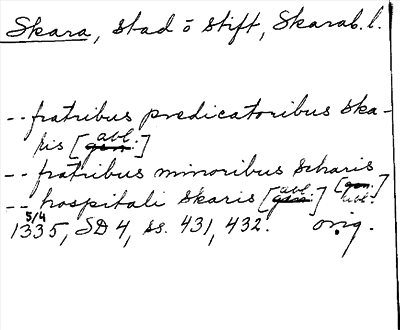 Skara, stad ō stift, Skarab. l.
-- fratribus predicatoribus ska-
ris [abl.]
-- fratribus minoribus scharis
-- hospitali skaris [abl.] [abl.]
5/4
1335, SD 4, ss. 431, 432. orig.